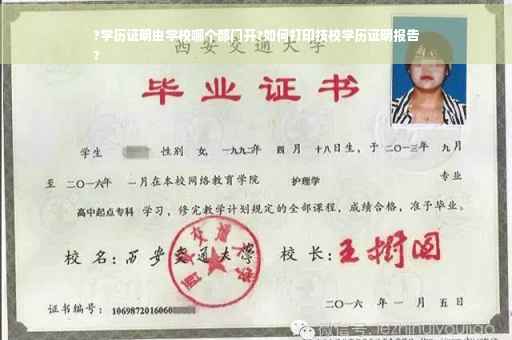 ?学历证明由学校哪个部门开?如何打印技校学历证明报告
?
西安交通大学
毕业证书
学生 性别 女, 一九九二年 四 月 十八日生, 于 二〇一三年 九月
至 二〇一六年 一月在本校网络教育学院 护理学 专业
高中起点专科 学习, 修完教学计划规定的全部课程, 成绩合格, 准予毕业。
校 名: 西安交通大学 校 长: 王树国
西安交通大学
证书编号: 1069872016060
二〇一六 年 一 月 五 日
微信号: jezhihuiyoujiao